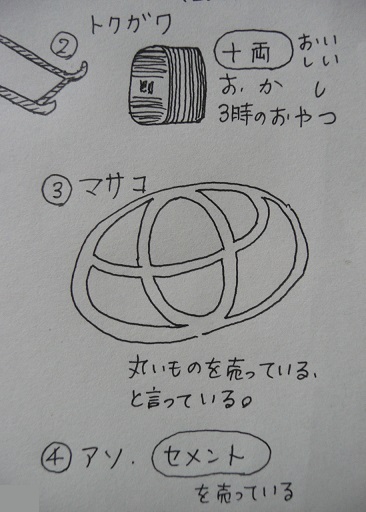 ② トクガワ
十両 おいしい
おかし
3時のおやつ
③ マサコ
丸いものを売っている、
と言っている。
④ アソ. セメント
を売っている